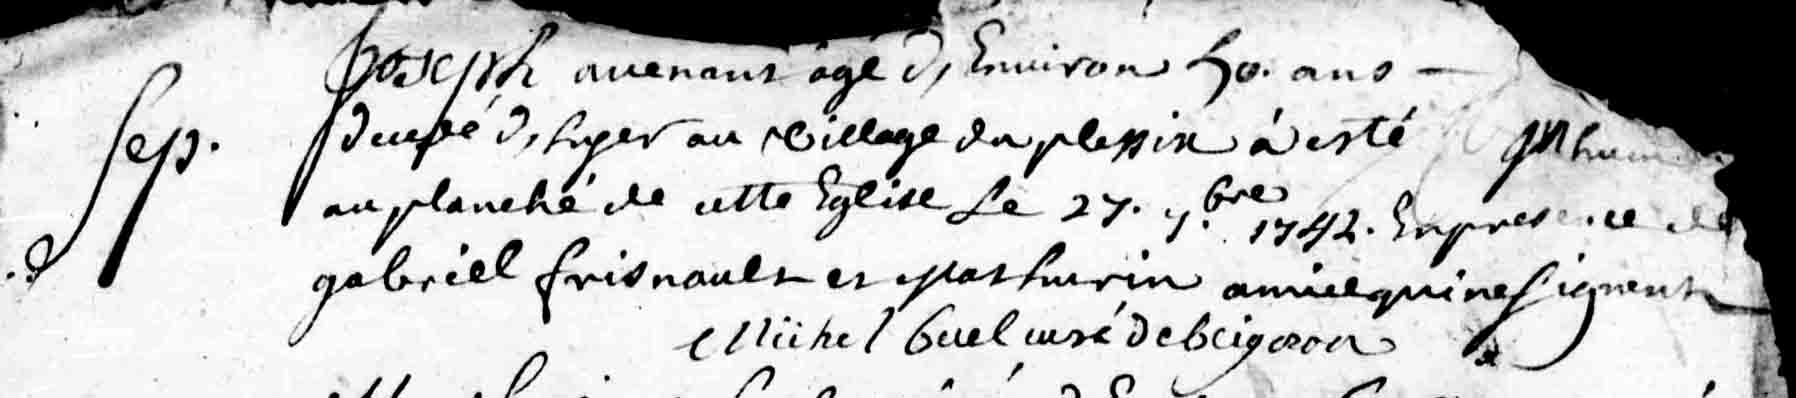 Joseph auenant agé d, Enuiron 50. ans
Sep. decedé d, hyer au village du plessix à esté Inhum
au planché de cette Eglise Le 27. 7.bre 1742. En presence de
gabriel frisnault et Mathurin amicel qui ne signent
Michel buel curé de beignon